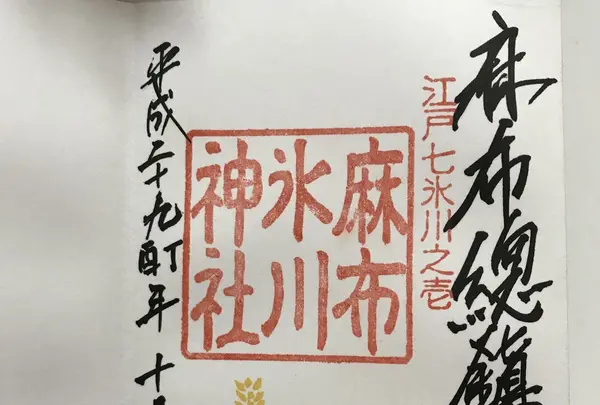 麻布總鎮
江戸七氷川之壱
麻布
氷川
神社
平成二十九丁酉年 十月